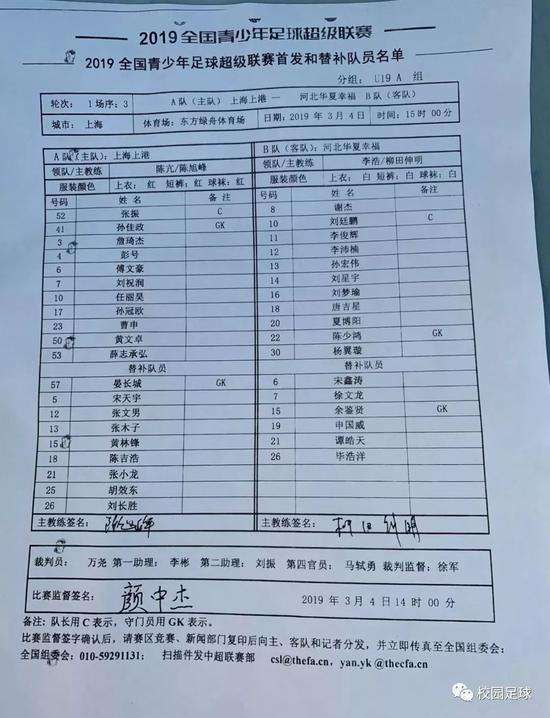 2019 全国青少年足球超级联赛
2019 全国青少年足球超级联赛首发和替补队员名单
分组: U19 A 组
轮次: 1 场序: 3 A队(主队) 上海上港 — 河北华夏幸福 B队(客队)
城市: 上海 体育场: 东方绿舟体育场 日期: 2019 年 3 月 4 日 时间: 15 时 00 分
A队(主队): 上海上港 B队(客队): 河北华夏幸福
领队/主教练 陈亢/陈旭峰 领队/主教练 李浩/柳田伸明
服装颜色 上衣: 红 短裤: 红 球袜: 红 服装颜色 上衣: 白 短裤: 白 球袜: 白
号码 姓名 备注 号码 姓名 备注
52 张振 C 8 谢杰
41 孙佳政 GK 10 刘廷鹏 C
3 詹琦杰 11 李俊辉
4 彭号 12 李沛楠
6 傅文豪 13 孙宏伟
7 刘祝润 14 刘星宇
10 任丽昊 16 刘梦瑜
17 孙冠欧 18 唐吉星
23 曹申 20 夏博阳
50 黄文卓 22 陈少鸿 GK
53 薛志承弘 30 杨翼璇
替补队员 替补队员
57 晏长城 GK 6 宋鑫涛
5 宋天宇 7 徐文龙
12 张文男 15 余鉴贤 GK
13 张木子 19 申国威
15 黄林锋 21 谭皓天
18 陈吉浩 26 毕浩洋
21 张小龙
25 胡效东
26 刘长胜
主教练签名: 主教练签名: 柳田伸明
裁判员: 万尧 第一助理: 李彬 第二助理: 刘振 第四官员: 马轼勇 裁判监督: 徐军
比赛监督签名: 颜中杰 2019 年 3 月 4 日 14 时 00 分
备注: 队长用 C 表示, 守门员用 GK 表示。
比赛监督签字确认后, 请赛区竞赛、新闻部门复印后向主、客队和记者分发, 并立即传真至全国组委会:
全国组委会: 010-59291131; 扫描件发中超联赛部 csl@thefa.cn, yan.yk @thecfa.cn
校园足球